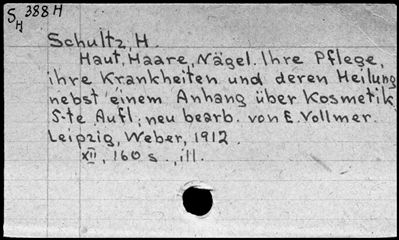 S 388 H
H
Schultz, H.
Haut, Haare, Nägel. Ihre Pflege,
ihre Krankheiten und deren Heilung
nebst einem Anhang über Kosmetik.
5-te Aufl., neu bearb. von E. Vollmer.
Leipzig, Weber, 1912.
XII, 160 s., ill.